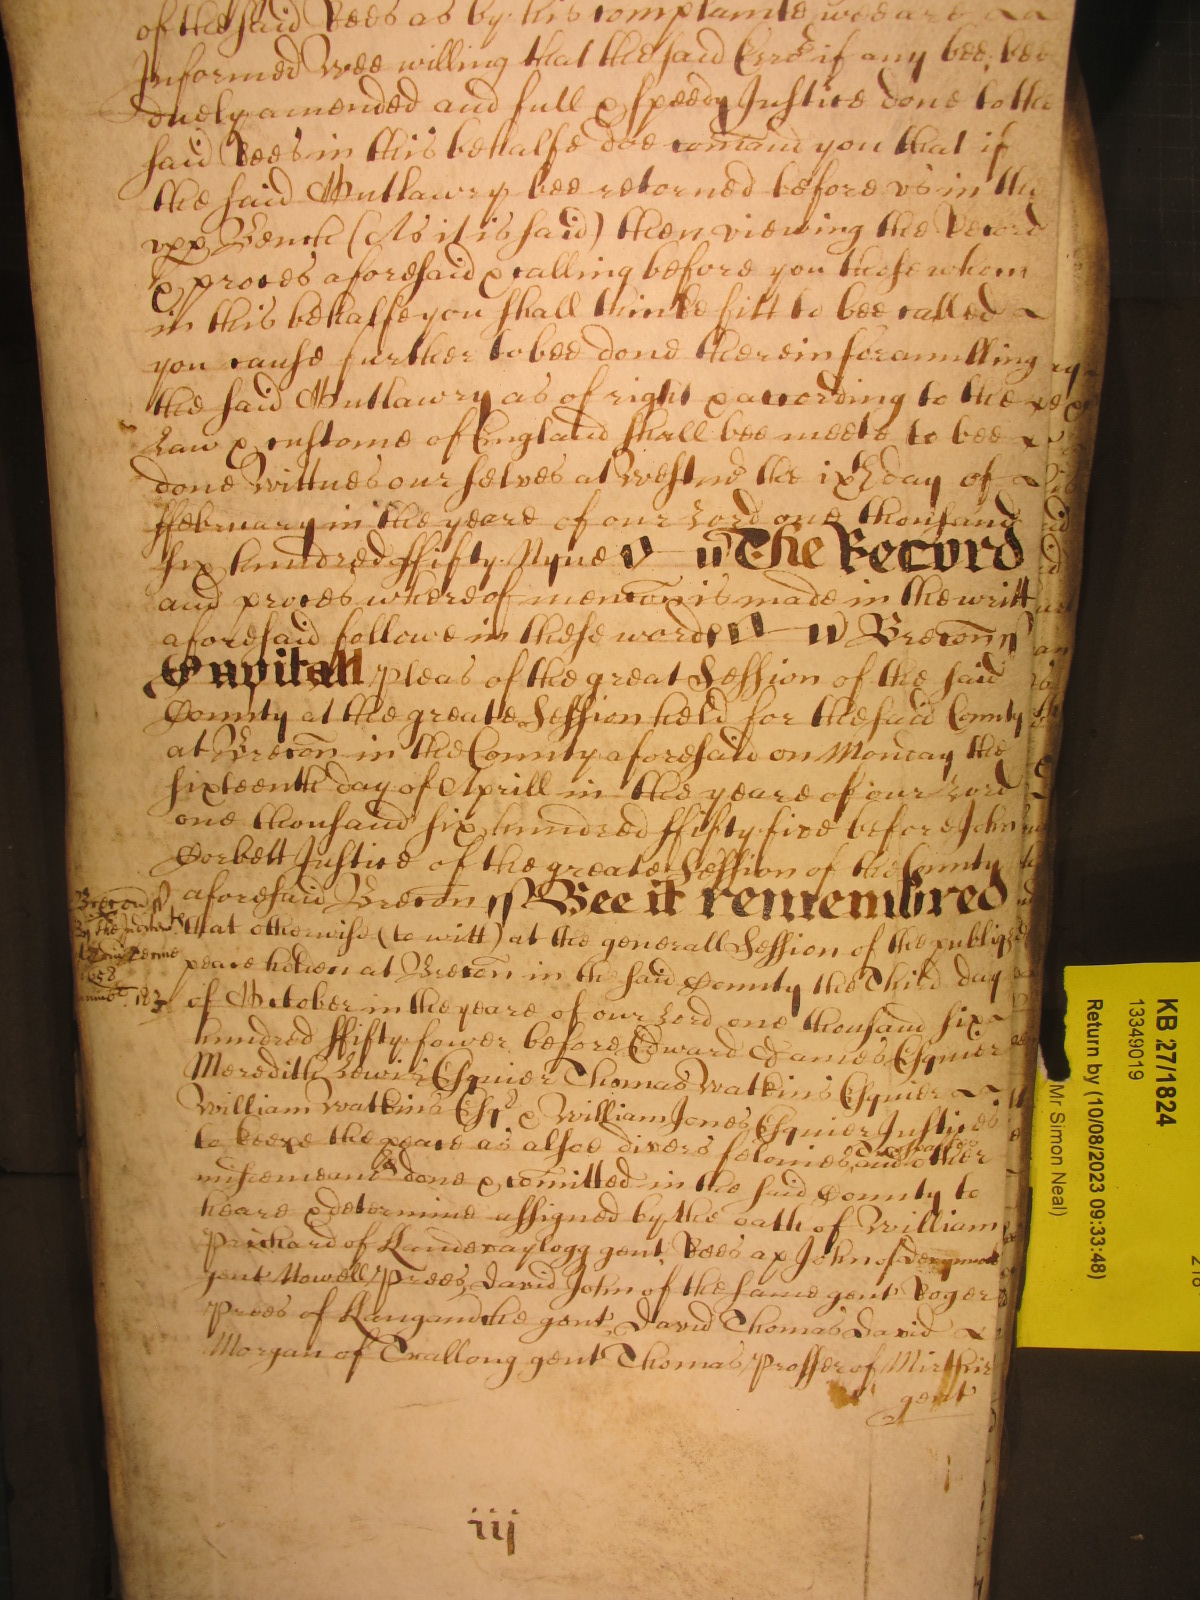 of the said Rees as by his complainte wee are
Informed Wee willing that the said Error if any bee, bee
duely amended and full & speedy Justice done to the
said Rees in this behalfe doe comaund you that if
the said Outlawry bee retorned before vs in the
vpp Bench (As it is said) then viewing the Record
& proces aforesaid & calling before you those whom
in this behalfe you shall thinke fitt to bee called
you cause further to bee done therein for anulling
the said Outlawry as of right & according to the
Law & custome of England shall bee meete to bee
done Wittnes our selves at Westmr the ixth day of
ffebruary in the yeare of our Lord one thousand
six hundred ffifty Nyne The Record
and proces whereof mencon is made in the writt
aforesaid followe in these wordes Brecon ss
Civitall Pleas of the great Session of the said
County at the greate Session held for the said County
at Brecon in the County aforesaid on Monday the
sixteenth day of Aprill in the yeare of our Lord
one thousand six hundred ffifty five before John
Corbett Justice of the greate Session of the County
aforesaid Brecon ss Bee it remembred
that otherwise (to witt) at the generall Session of the publique
peace holden at Brecon in the said County the Third day
of October in the yeare of our Lord one thousand six
hundred ffifty fower before Edward Games Esquier
Meredith Lewis Esquier Thomas Watkins Esquier
William Watkins Esqr & William Jones Esquier Justices
to keepe the peace as alsoe divers felonies trespasses and other
misdemeanrs done & comitted in the said County to
heare & determine assigned by the oath of William
Prichard of gent Rees ap John of
gent Howell Prees David John of the same gent Roger
Prees of gent David Thomas David
Morgan of Trallong gent Thomas Prosser of Mirthir
gent
Brecon ss
1658
iij
KB 27/1824
13349019
Return by (10/08/2023 09:33:48)
Mr Simon Neal)